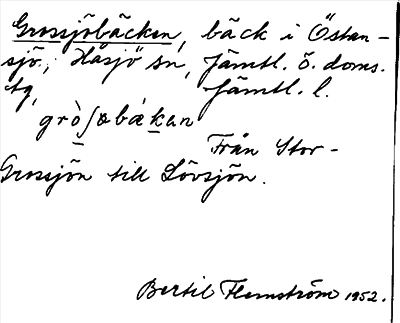 Grossjöbäcken, bäck i Östan-
sjö, Håsjö sn, Jämtl. ö. doms.
tg, Jämtl. l.
gròʃøbækan
Från Stor-
Grossjön till Lövsjön.
Bertil Flemström 1952.